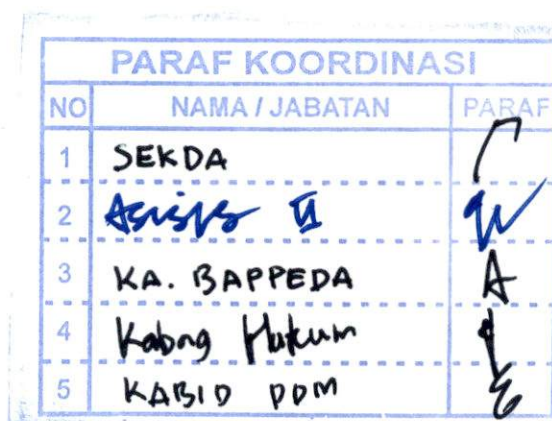 PARAF KOORDINASI
NO NAMA / JABATAN PARAF
1 SEKDA
2 II
3 KA. BAPPEDA
4 Kabag Hukum
5 KABID PDM